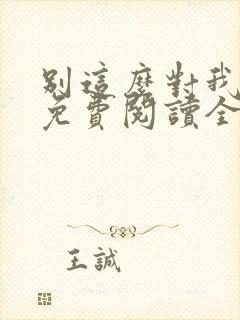 別這麼對我
免費閱讀全
王誠